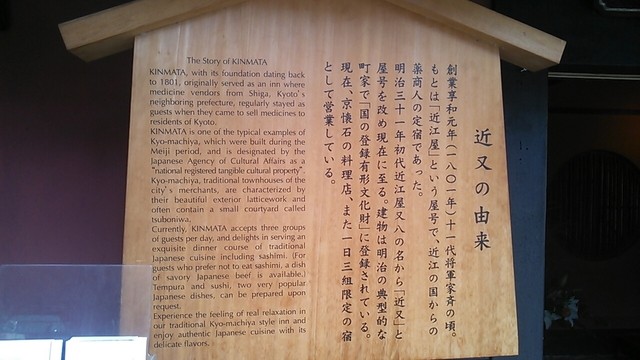 近又の由来
創業享和元年（一八〇一年）十一代将軍家斉の頃。
もとは「近江屋」という屋号で、近江の国からの
薬商人の定宿であった。
明治三十一年初代近江屋又八の名から「近又」と
屋号を改め現在に至る。建物は明治の典型的な
町家で「国の登録有形文化財」に登録されている。
現在、京懐石の料理店、また一日三組限定の宿
として営業している。
The Story of KINMATA
KINMATA, with its foundation dating back
to 1801, originally served as an inn where
medicine vendors from Shiga, Kyoto's
neighboring prefecture, regularly stayed as
guests when they came to sell medicines to
residents of Kyoto.
KINMATA is one of the typical examples of
Kyo-machiya, which were built during the
Meiji period, and is designated by the
Japanese Agency of Cultural Affairs as a
"national registered tangible cultural property".
Kyo-machiya, traditional townhouses of the
city's merchants, are characterized by
their beautiful exterior latticework and
often contain a small courtyard called
tsuboniwa.
Currently, KINMATA accepts three groups
of guests per day, and delights in serving an
exquisite dinner course of traditional
Japanese cuisine including sashimi. (For
guests who prefer not to eat sashimi, a dish
of savory Japanese beef is available.)
Tempura and sushi, two very popular
Japanese dishes, can be prepared upon
request.
Experience the feeling of real relaxation in
our traditional Kyo-machiya style inn and
enjoy authentic Japanese cuisine with its
delicate flavors.